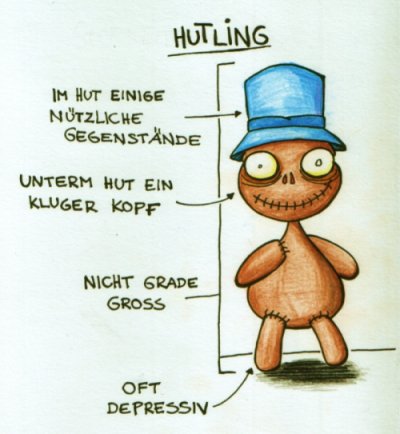 HUTLING
IM HUT EINIGE
NÜTZLICHE
GEGENSTÄNDE
UNTERM HUT EIN
KLUGER KOPF
NICHT GRADE
GROSS
OFT
DEPRESSIV